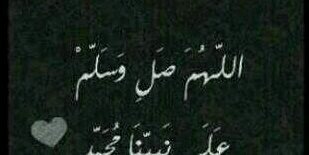 اللّهُمَ صَلِ وَسَلّمْ
عَلَى نَبِيّنَا مُحَمّد